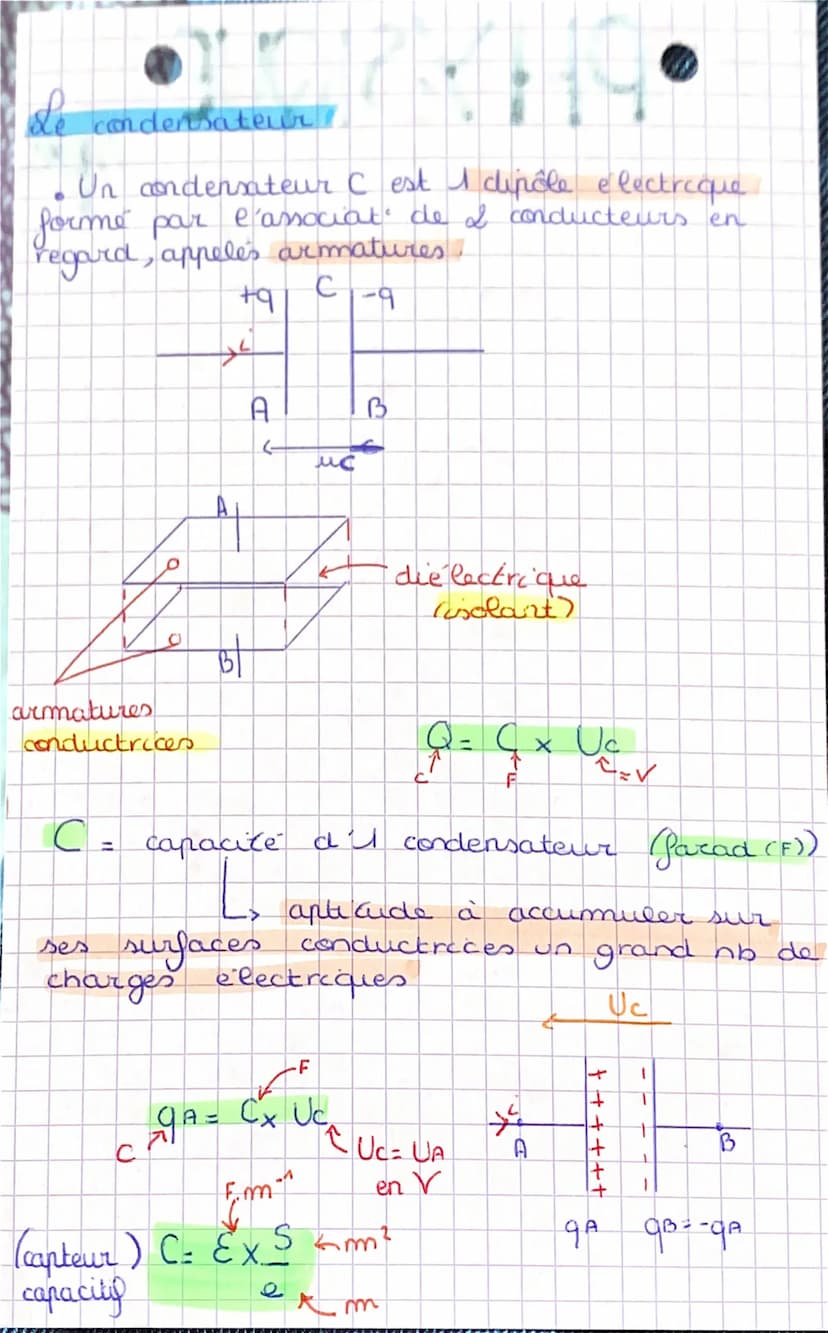 Le condensateur
. Un condensateur C est 1 dipôle électrique
formé par l'associat° de 2 conducteurs en
regard, appelés armatures.
+q C -q
i
A B
uc
A
diélectrique
(isolant)
B
armatures
conductrices
Q = C x Uc
C F = V
C = capacité d'1 condensateur (farad (F))
↳ aptitude à accumuler sur
ses surfaces conductrices un grand nb de
charges électriques
Uc
F
qA = C x Uc
C
Uc = UA
en V
i
A B
+ + + + + + +
- - - - - -
qA qB = -qA
F.m⁻¹
(capteur) C = Ɛ x S/e ← m²
capacitif
m